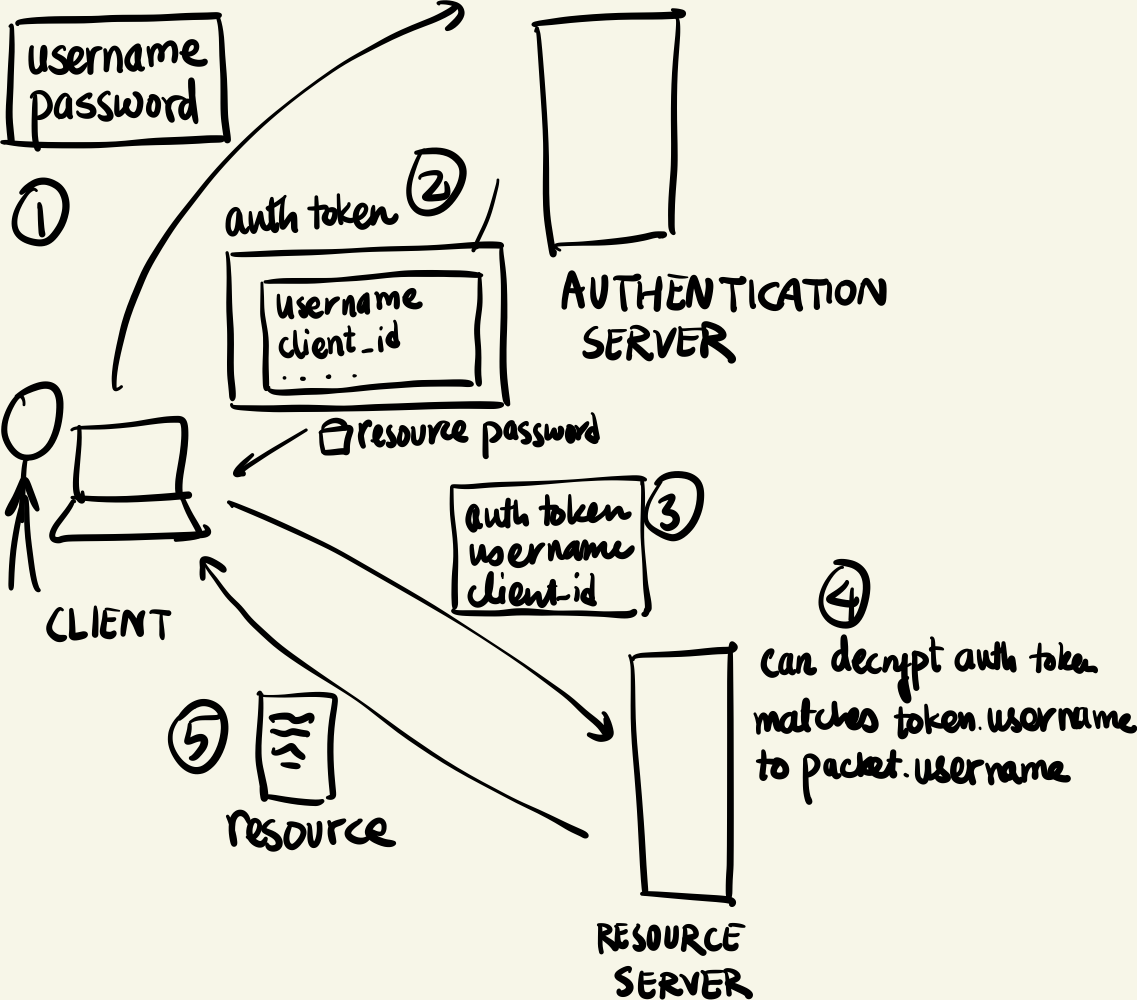 username
password
1
2
auth token
username
client_id
. . . .
resource password
AUTHENTICATION
SERVER
3
auth token
username
client_id
CLIENT
4
can decrypt auth token
matches token.username
to packet.username
5
resource
RESOURCE
SERVER